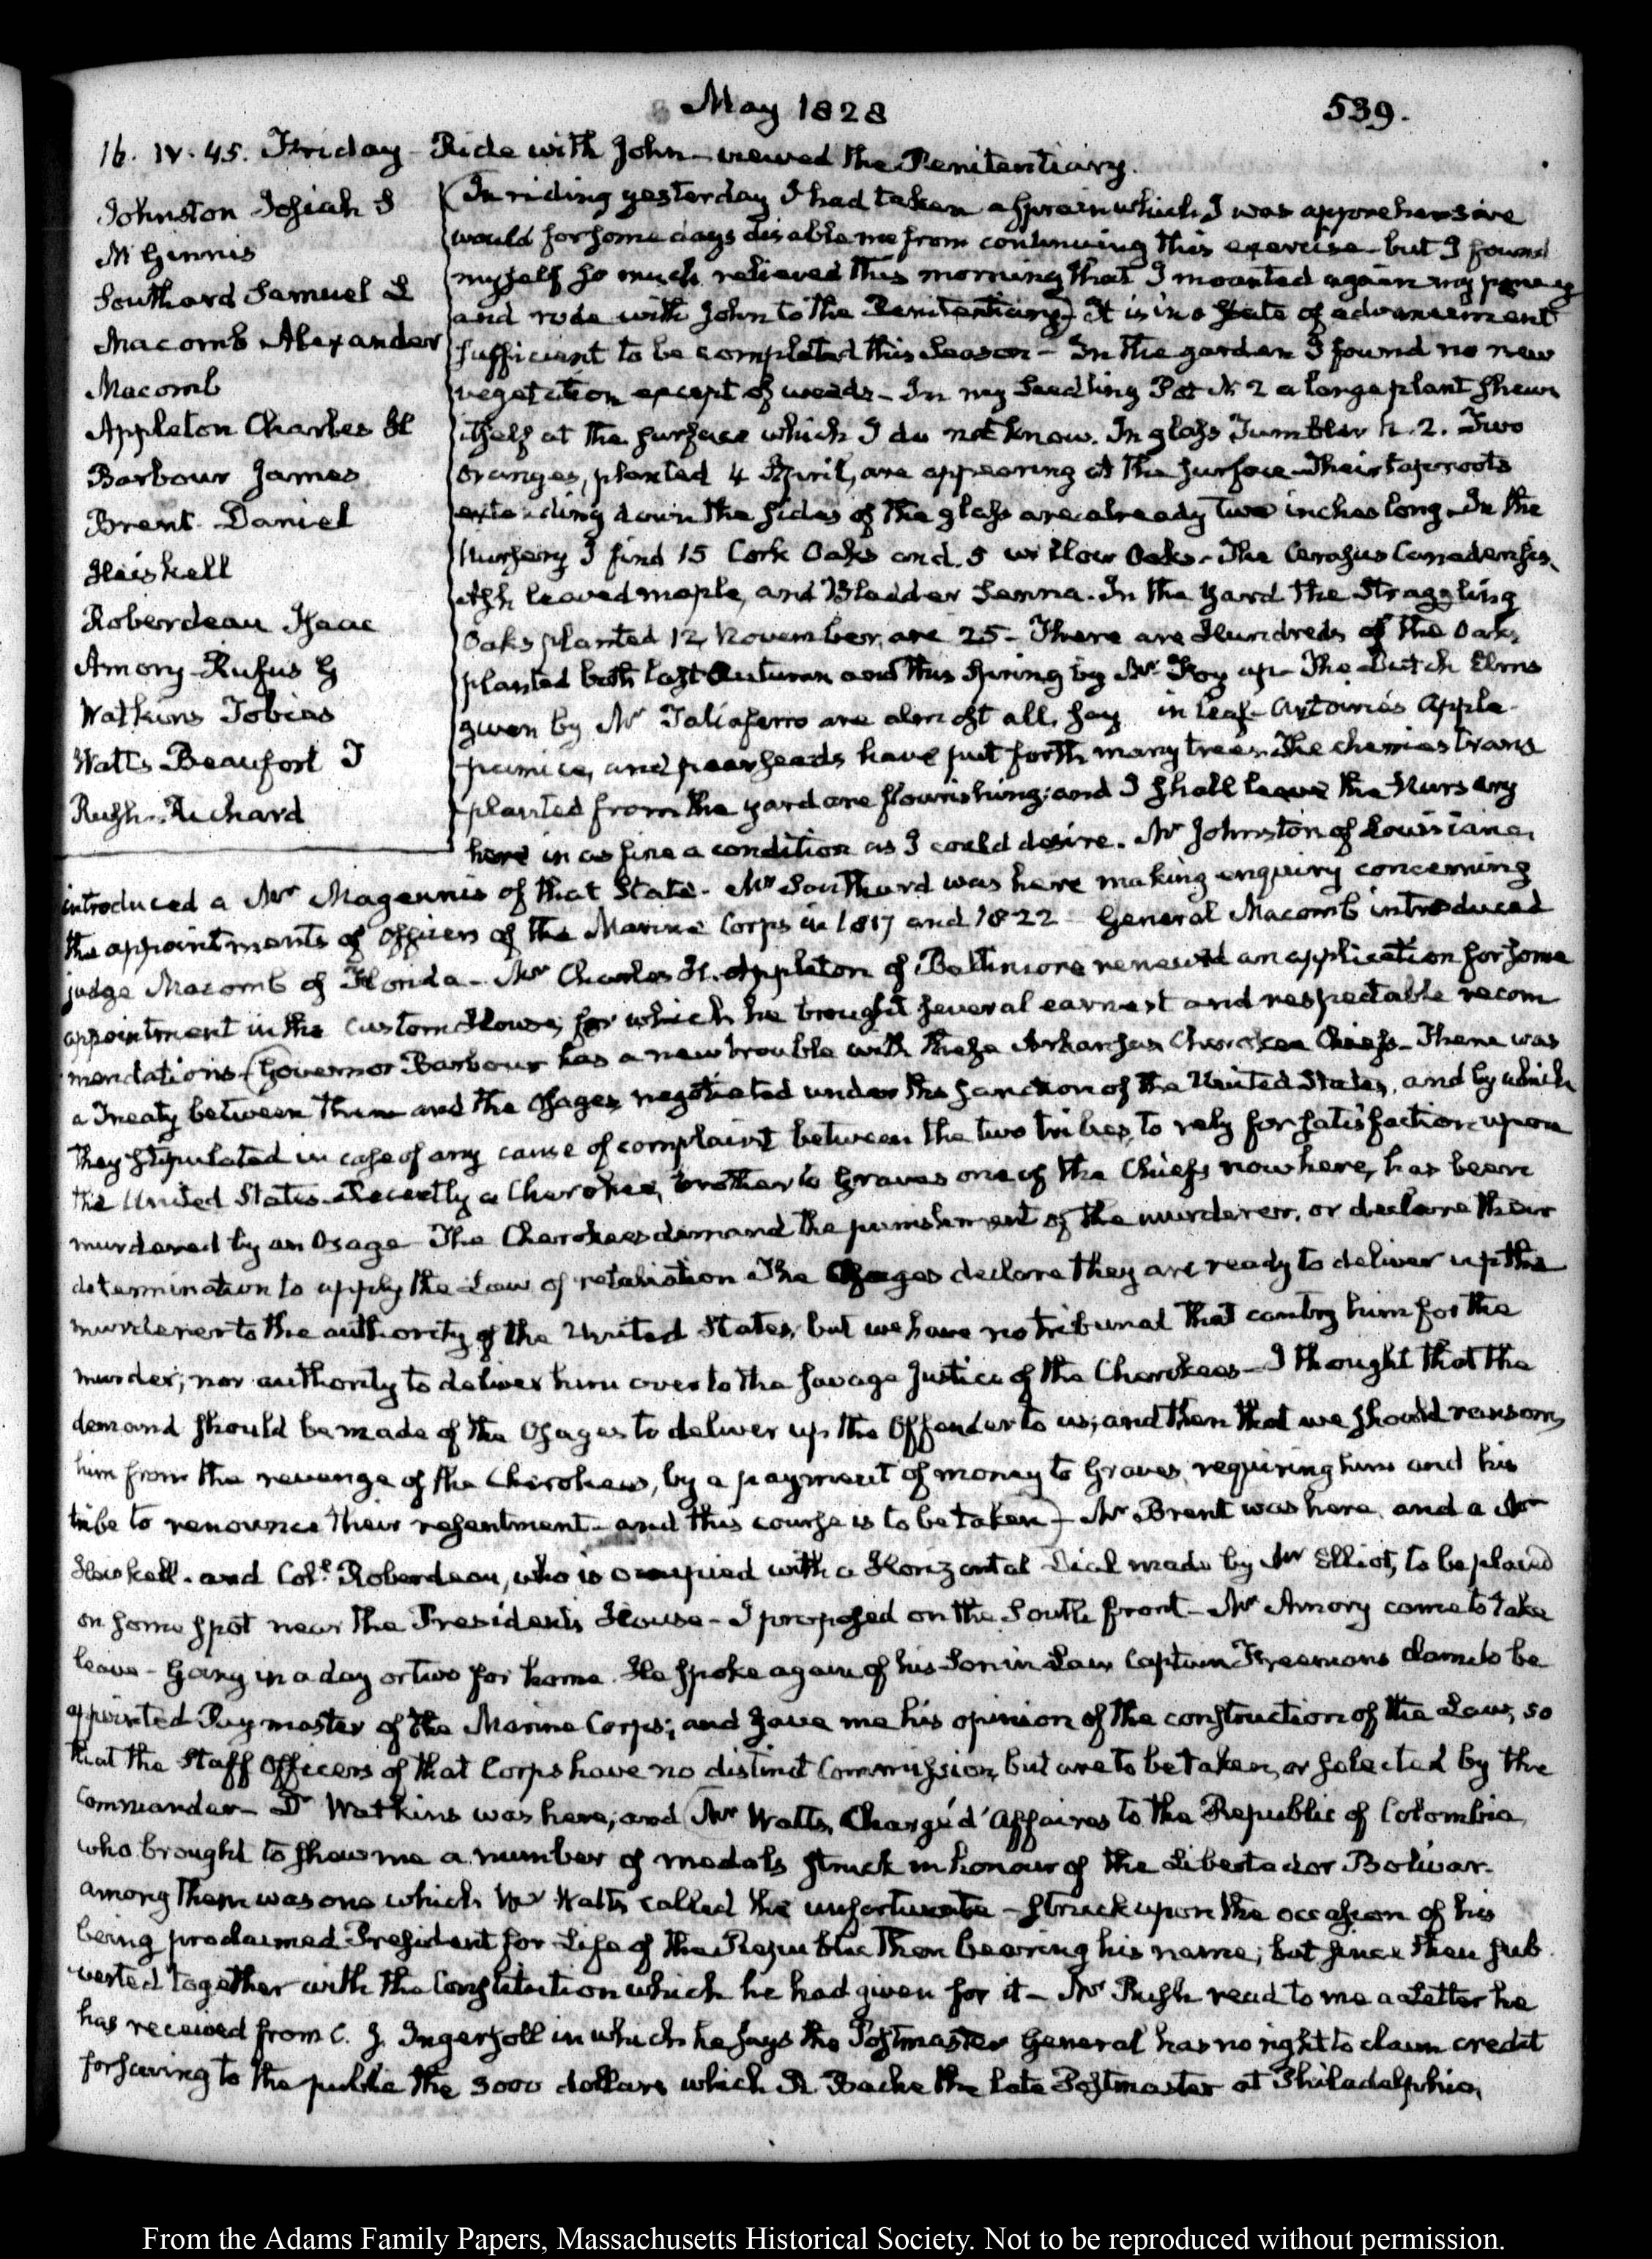 May 1828
539.
16. IV. 45. Friday - Ride with John - viewed the Penitentiary.
Johnston Josiah S
McGinnis
Southard Samuel L
Macomb Alexander
Macomb
Appleton Charles H
Barbour James
Brent Daniel
Heiskell
Roberdeau Isaac
Amory Rufus G
Watkins Tobias
Watts Beaufort T
Rush Richard
(In riding yesterday I had taken a sprain which I was apprehensive
would for some days disable me from continuing this exercise - but I found
myself so much relieved this morning that I mounted again my poney
and rode with John to the Penitentiary) It is in a state of advancement
sufficient to be completed this Season - In the garden I found no new
vegetation except of weeds - In my Seedling Pot N 2 a large plant shews
itself at the surface which I do not know. In glass Tumbler n. 2. Two
oranges, planted 4 April, are appearing at the surface - Their taproots
extending down the sides of the glass are already two inches long - In the
Nursery I find 15 Cork Oaks and 5 willow Oaks - The Cerasus Canadensis,
Ash leaved maple, and Bladder Senna. In the yard the Straggling
Oaks planted 12 November, are 25 - There are Hundreds of the Oaks
planted both last Autumn and this Spring by Mr Foy up - The Dutch Elms
given by Mr Taliaferro are almost all, say in leaf - Antoine's apple
pumice, and pear seeds have put forth many trees. The cherries trans
planted from the yard are flourishing; and I shall leave the Nursery
here in as fine a condition as I could desire. Mr Johnston of Louisiana,
introduced a Mr Magennis of that State - Mr Southard was here making enquiry concerning
the appointments of Officers of the Marine Corps in 1817 and 1822 - General Macomb introduced
judge Macomb of Florida - Mr Charles H. Appleton of Baltimore renewed an application for some
appointment in the Custom House, for which he brought several earnest and respectable recom
mendations - (Governor Barbour has a new trouble with these Arkansas Cherokee Chiefs - There was
a Treaty between them and the Osages negotiated under the sanction of the United States, and by which
they stipulated in case of any cause of complaint between the two tribes, to rely for satisfaction upon
the United States - Recently a Cherokee, brother to Graves one of the Chiefs now here, has been
murdered by an Osage - The Cherokees demand the punishment of the murderer, or declare their
determination to apply the Law of retaliation - The Osages declare they are ready to deliver up the
murderer to the authority of the United States, but we have no tribunal that can try him for the
murder; nor authority to deliver him over to the savage justice of the Cherokees - I thought that the
demand should be made of the Osages to deliver up the Offender to us; and then that we should ransom
him from the revenge of the Cherokees, by a payment of money to Graves, requiring him and his
tribe to renounce their resentment - and this course is to be taken) - Mr Brent was here, and a Mr
Heiskell. and Coll. Roberdeau, who is occupied with a Horizontal Dial made by Mr Elliot, to be placed
on some spot near the President's House - I proposed on the South front - Mr Amory came to take
leave - Going in a day or two for home. He spoke again of his Son in Law Captain Freeman's claim to be
appointed Paymaster of the Marine Corps; and gave me his opinion of the construction of the Law, so
that the Staff Officers of that Corps have no distinct Commission, but are to be taken, or selected by the
Commander - Dr Watkins was here; and (Mr Watts, Chargé d'Affaires to the Republic of Colombia,
who brought to shew me a number of medals struck in honour of the Libertador Bolivar.
among them was one which Mr Watts called the unfortunate - struck upon the occasion of his
being proclaimed President for Life of the Republic then bearing his name; but since then sub
verted together with the Constitution which he had given for it - Mr Rush read to me a Letter he
has received from C. J. Ingersoll in which he says the Postmaster General has no right to claim credit
for saving to the public the 3000 dollars which R Bache the late Postmaster at Philadelphia,
From the Adams Family Papers, Massachusetts Historical Society. Not to be reproduced without permission.